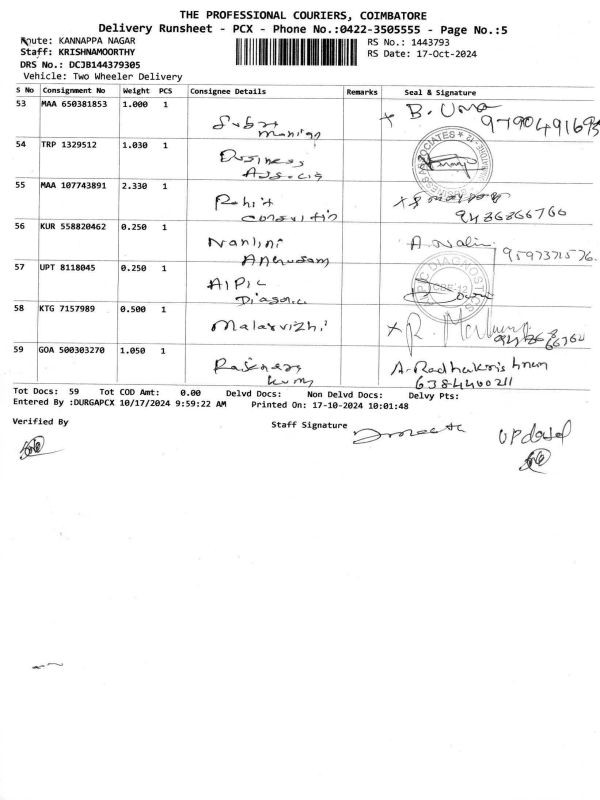 THE PROFESSIONAL COURIERS, COIMBATORE
Delivery Runsheet - PCX - Phone No.:0422-3505555 - Page No.:5
Route: KANNAPPA NAGAR
RS No.: 1443793
Staff: KRISHNAMOORTHY
RS Date: 17-Oct-2024
DRS No.: DCJB144379305
Vehicle: Two Wheeler Delivery
S No Consignment No Weight PCS Consignee Details Remarks Seal & Signature
53 MAA 650381853 1.000 1 B. Uma
9790491695
54 TRP 1329512 1.030 1 Business
55 MAA 107743891 2.330 1 Rohit
9486866760
56 KUR 558820462 0.250 1 Nanlini A. Nalini
9597371576.
57 UPT 8118045 0.250 1 AIPIC
DIAGNOSTICS
58 KTG 7157989 0.500 1 Malarvizhi
59 GOA 500303270 1.050 1 A. Radhakrishnan
6384400211
Tot Docs: 59 Tot COD Amt: 0.00 Delvd Docs: Non Delvd Docs: Delvy Pts:
Entered By :DURGAPCX 10/17/2024 9:59:22 AM Printed On: 17-10-2024 10:01:48
Verified By
Staff Signature
Updated